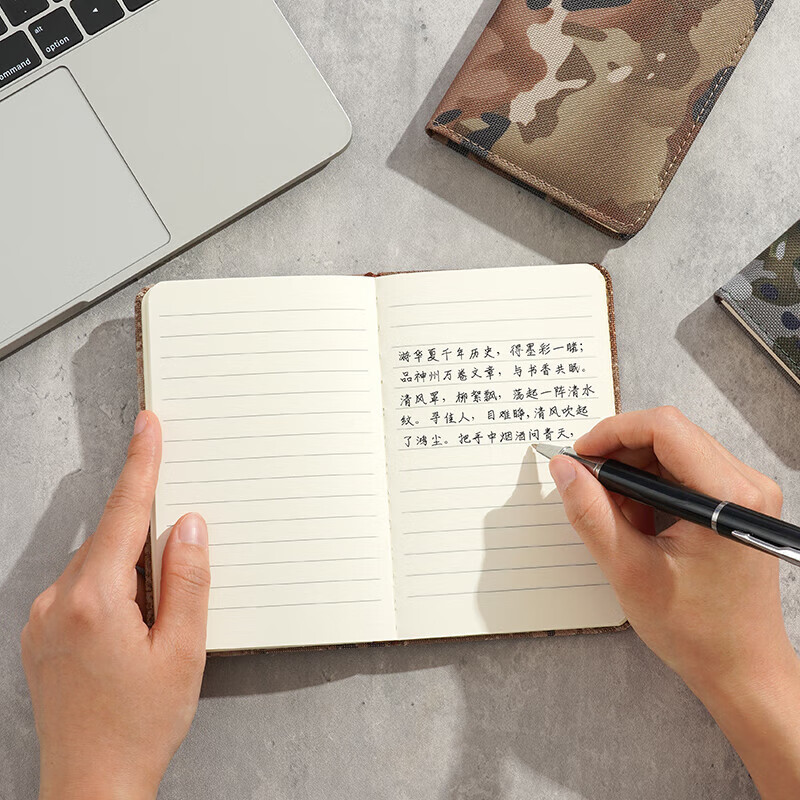 alt
command
option
游华夏千年历史，得墨彩一睹；
品神州万卷文章，与书香共眠。
清风罩，柳絮飘，荡起一阵清水
纹。寻佳人，目难睁，清风吹起
了鸿尘。把手中烟酒问青天，